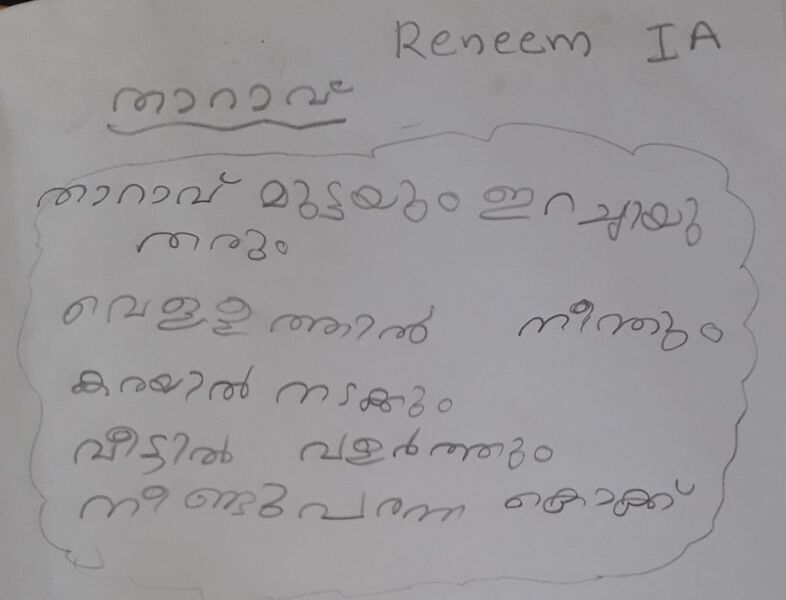 Reneem I A
താറാവ്
താറാവ് മുട്ടയും ഇറച്ചിയു
തരും
വെള്ളത്തിൽ നീന്തും
കരയിൽ നടക്കും
വീട്ടിൽ വളർത്തും
നീണ്ടുപരന്ന കൊക്ക്